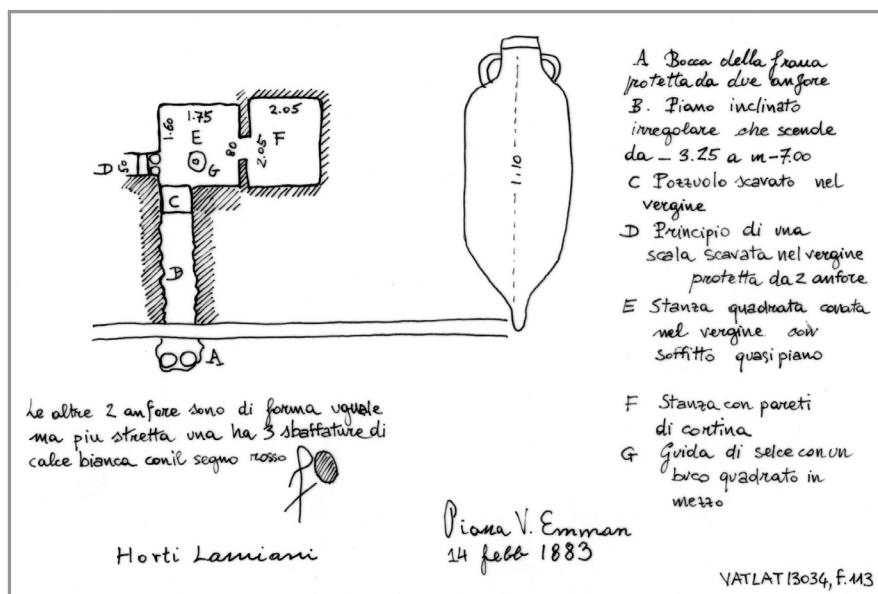 1.75
2.05
1.60
E
F
80
2.05
G
D
50
C
B
1.10
A
A Bocca della frana
protetta da due anfore
B. Piano inclinato
irregolare che scende
da - 3.25 a m-7.00
C Pozzuolo scavato nel
vergine
D Principio di una
scala scavata nel vergine
protetta da 2 anfore
E Stanza quadrata cavata
nel vergine con
soffitto quasi piano
F Stanza con pareti
di cortina
G Guida di selce con un
buco quadrato in
mezzo
Le altre 2 anfore sono di forma uguale
ma piu stretta una ha 3 sbaffature di
calce bianca con il segno rosso
Horti Lamiani
Piazza V. Emman
14 febb 1883
VATLAT13034, f. 113